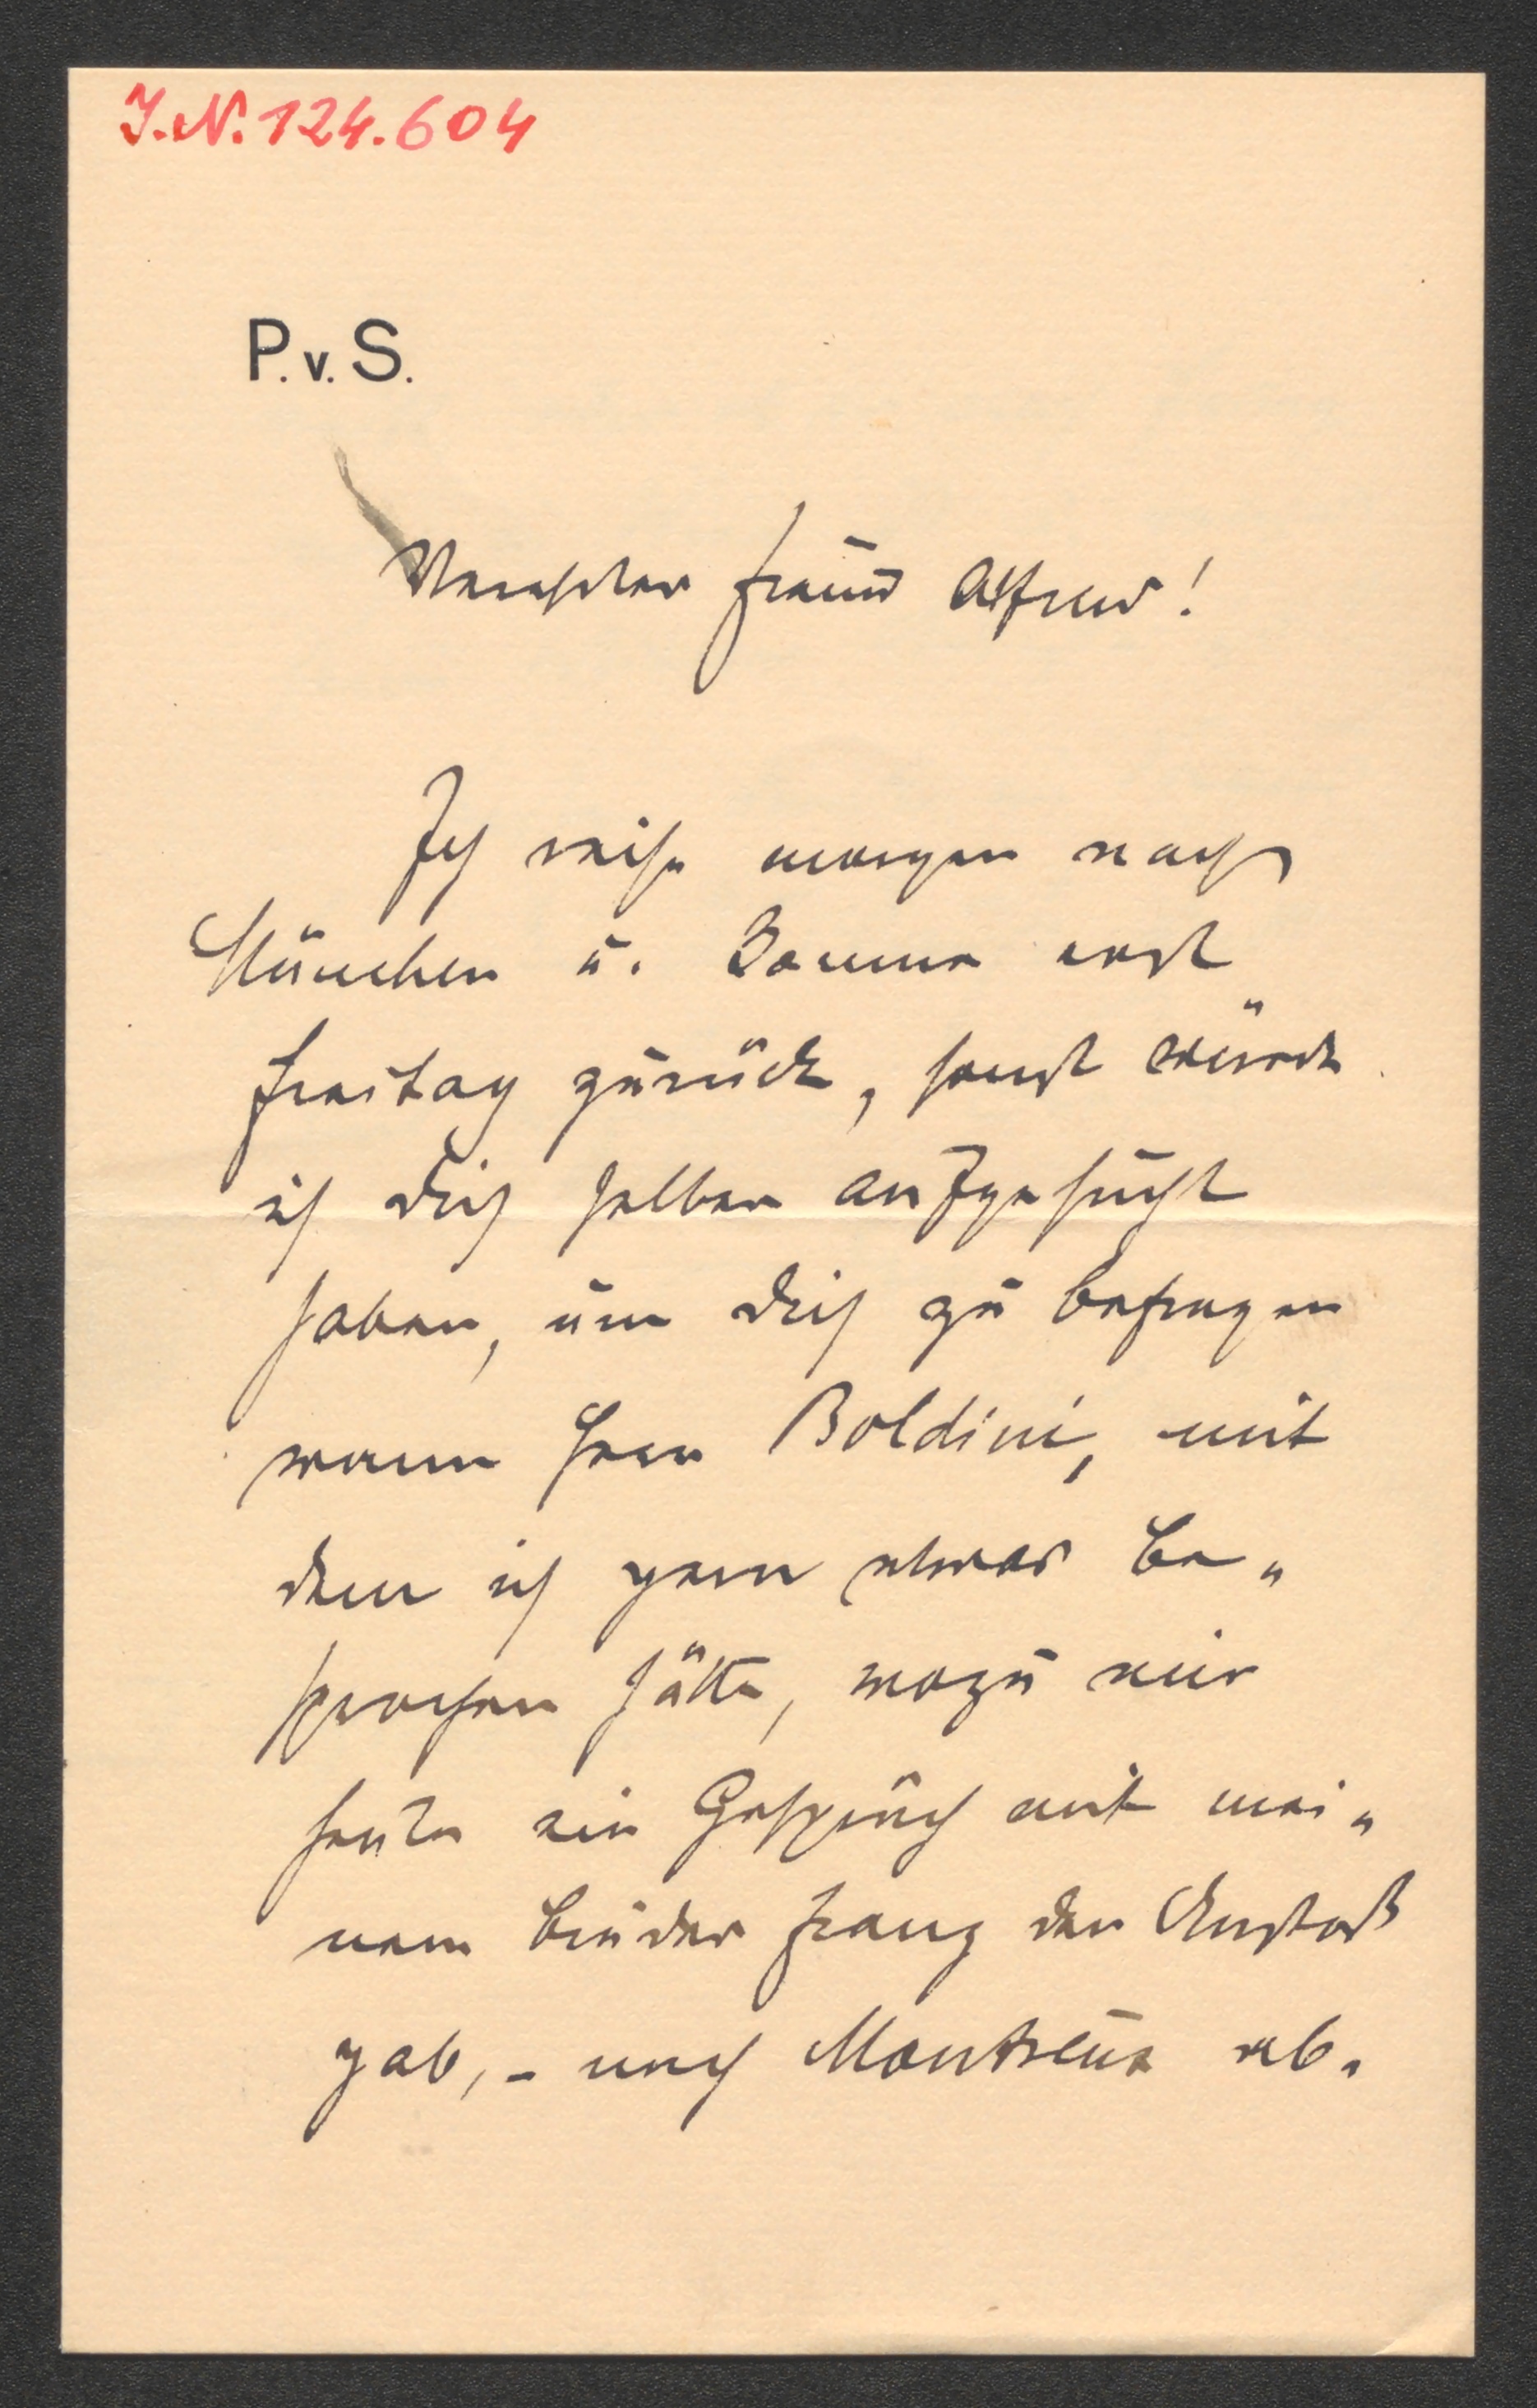 I.N. 124.604
P. v. S.
Verehrter Freund Alfred!
Ich reise morgen nach
München u. komme erst
Freitag zurück, sonst würde
ich Dich selber aufgesucht
haben, um Dich zu befragen
wann Herr Boldini, mit
dem ich gern etwas be„
sprochen hätte, wozu mir
heute ein Gespräch mit mei„
nem Bruder Franz den Anstoß
gab, – nach Montreux ab„